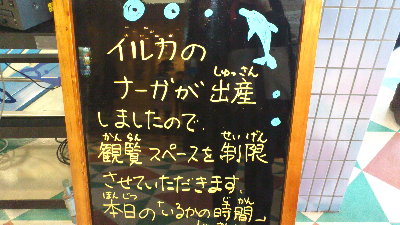 イルカの
しゅっさん
ナーガが出産
しましたので、
かんらん せいげん
観覧スペースを制限
させていただきます。
ほんじつ じかん
本日の「いるかの時間」